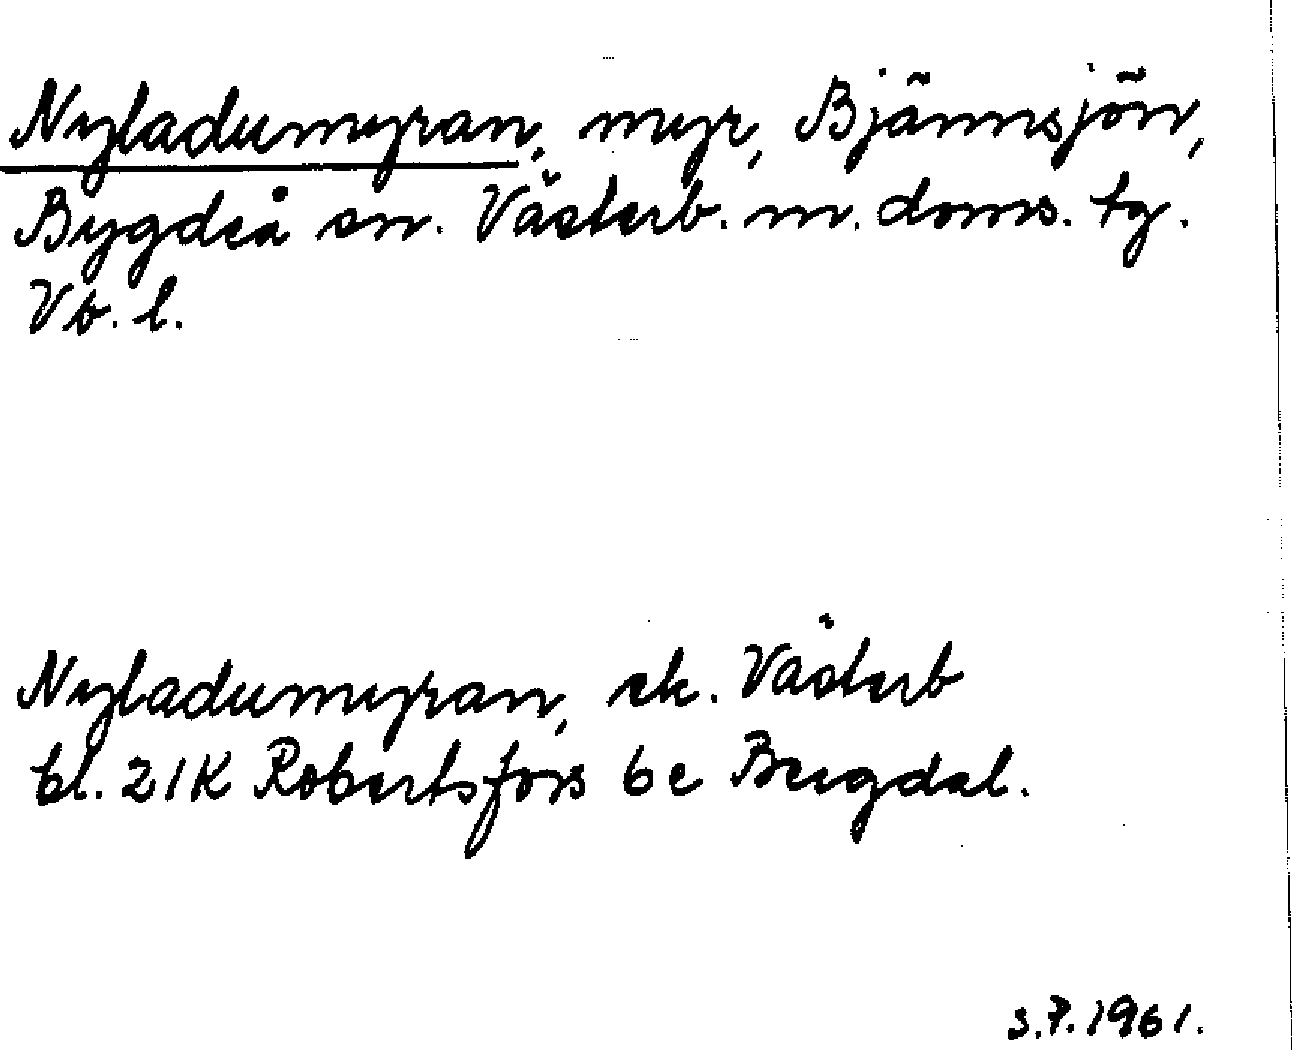 Nyladumyran, myr, Bjännsjön,
Bygdeå sn. Västerb. m. doms. tg.
Vb. l.
Nyladumyran, ek. Västerb
bl. 21K Robertsfors 6e Bergdal.
3.7.1961.